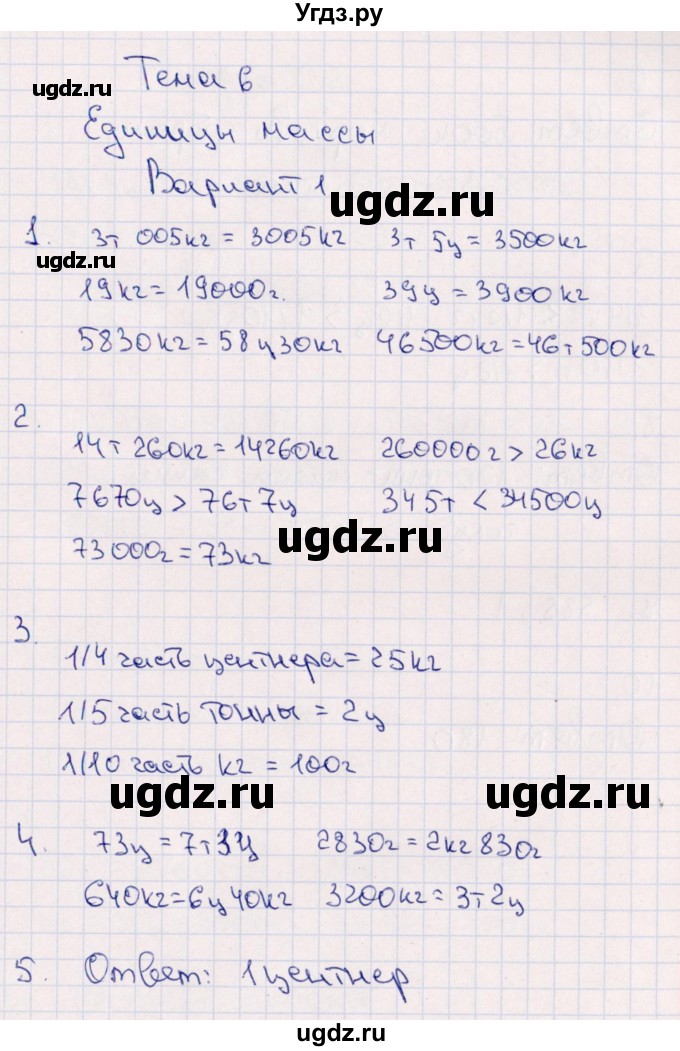 Угдз.ру
Тема 6
ugdz.ru
Единицы массы
Вариант 1
ugdz.ru
1. 3т 005кг = 3005кг 3т 5ц = 3500кг
ugdz.ru
19кг = 19000г. 39ц = 3900кг
5830кг = 58ц30кг 46500кг = 46т500кг
2.
14т 260кг = 14260кг 260000г > 26кг
7670ц > 76т7ц 345т < 34500ц
ugdz.ru
73000г = 73кг
3.
1/4 часть центнера = 25кг
1/5 часть тонны = 2ц
1/10 часть кг = 100г
ugdz.ru ugdz.ru
4. 73ц = 7т3ц 2830г = 2кг830г
640кг = 6ц40кг 3200кг = 3т2ц
5. Ответ: 1центнер
ugdz.ru